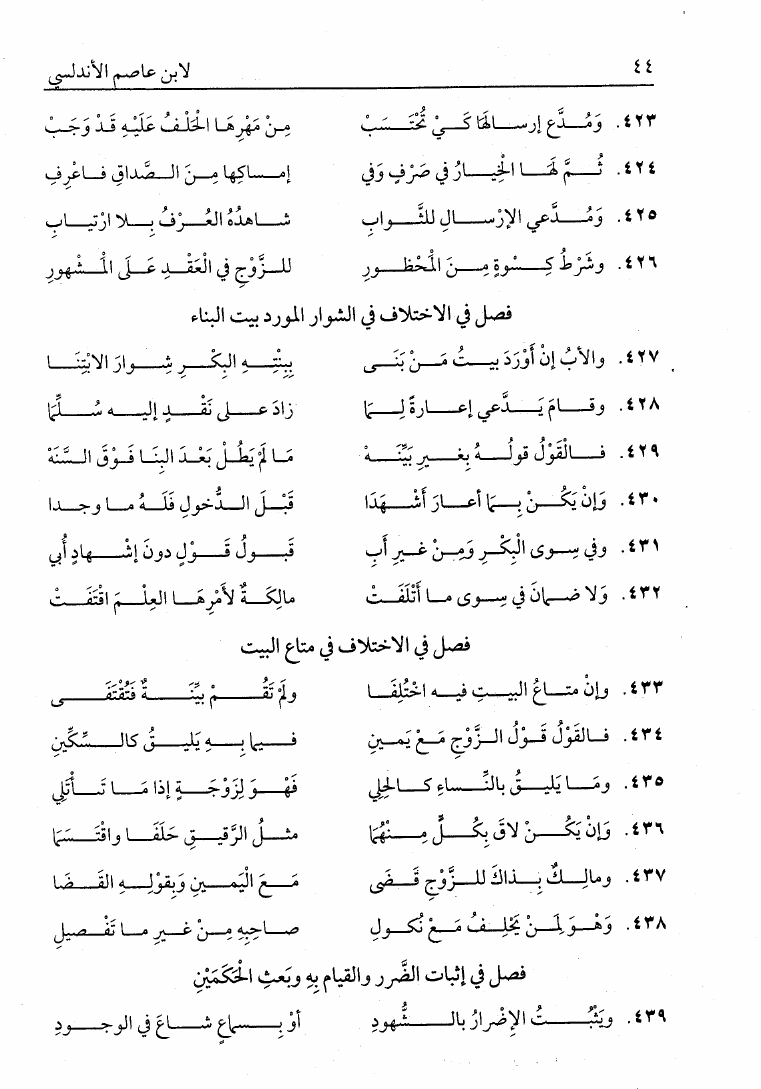 ٤٤ لابن عاصم الأندلسي
٤٢٣. وَمُدَّعٍ إرسالَهَا كَيْ تُحْتَسَبْ مِنْ مَهْرِهَا الْحَلْفُ عَلَيْهِ قَدْ وَجَبْ
٤٢٤. ثُمَّ لَهَا الخِيَارُ في صَرْفٍ وَفِي إمساكِهَا مِنَ الصَّداقِ فاعْرِفِ
٤٢٥. وَمُدَّعي الإرْسالِ للثَّوابِ شاهدُهُ العُرْفُ بِلا ارْتيابِ
٤٢٦. وشَرْطُ كِسْوةٍ مِنَ الْمَحْظورِ للزَّوْجِ في الْعَقْدِ عَلَى الْمَشْهورِ
فصل في الاختلاف في الشوار المورد بيت البناء
٤٢٧. والأبُ إنْ أَوْرَدَ بيتُ مَنْ بَنَى بِبِنْتِهِ البِكْرِ شِوارَ الابْتِنَا
٤٢٨. وقامَ يَدَّعي إعارةً لِمَا زادَ على نَقْدٍ إليه سُلِّمَا
٤٢٩. فالْقَوْلُ قولُهُ بِغيرِ بَيِّنَهْ مَا لَمْ يَطُلْ بَعْدَ البِنَا فَوْقَ السَّنَهْ
٤٣٠. وَإنْ يَكُنْ بِمَا أعارَ أشْهَدَا قَبْلَ الدُّخولِ فَلَهُ ما وجدا
٤٣١. وفي سِوى الْبِكْرِ وَمِنْ غيرِ أبِ قَبولُ قَوْلٍ دونَ إشْهادٍ أُبي
٤٣٢. وَلا ضمانَ في سِوى ما أتْلَفَتْ مالِكَةٌ لأمْرِهَا العِلْمَ اقْتَفَتْ
فصل في الاختلاف في متاع البيت
٤٣٣. وإنْ متاعُ البيتِ فيه اخْتُلِفَا ولَمْ تَقُمْ بيِّنَةٌ فَتُقْتَفَى
٤٣٤. فالقَوْلُ قَوْلُ الزَّوْجِ مَعْ يَمينِ فيما بِهِ يَليقُ كالسِّكِّينِ
٤٣٥. ومَا يَليقُ بالنِّساءِ كالحُلِي فَهْوَ لِزَوْجَةٍ إذا مَا تَأْتَلِي
٤٣٦. وَإنْ يَكُنْ لاقَ بِكُلٍّ مِنْهُمَا مثلُ الرَّقيقِ حَلَفَا واقْتَسَمَا
٤٣٧. ومالِكٌ بِذاكَ للزَّوْجِ قَضَى مَعَ الْيَمينِ وَبِقولِهِ القَضَا
٤٣٨. وَهْوَ لِمَنْ يَحْلِفُ مَعْ نُكولِ صاحِبِهِ مِنْ غيرِ ما تَفْصيلِ
فصل في إثبات الضَّرر والقيام بِهِ وبَعثِ الْحَكَمَيْنِ
٤٣٩. ويَثْبُتُ الإضْرارُ بالشُّهودِ أوْ بِسماعٍ شاعَ في الوجودِ